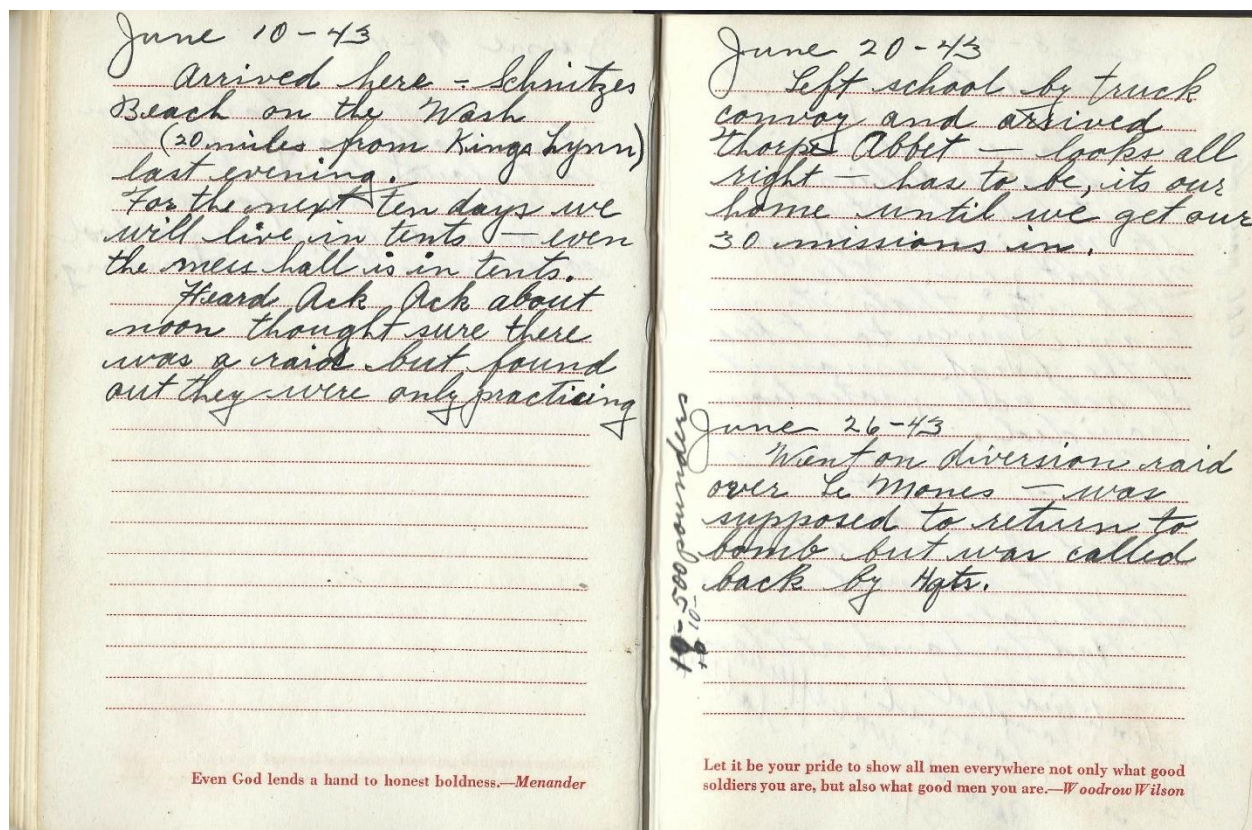 June 10-43
Arrived here - Schnitzes
Beach on the Wash
(20 miles from Kings Lynn)
last evening.
For the next ten days we
will live in tents — even
the mess hall is in tents.
Heard Ack Ack about
noon thought sure there
was a raid but found
out they were only practicing
Even God lends a hand to honest boldness.—Menander
June 20-43
Left school by truck
convoy and arrived
Thorpe Abbet — looks all
right — has to be, its our
home until we get our
30 missions in.
June 26-43
Went on diversion raid
over Le Mones — was
supposed to return to
bomb but was called
back by Hqts.
10-500 pounders
10-
Let it be your pride to show all men everywhere not only what good
soldiers you are, but also what good men you are.—Woodrow Wilson